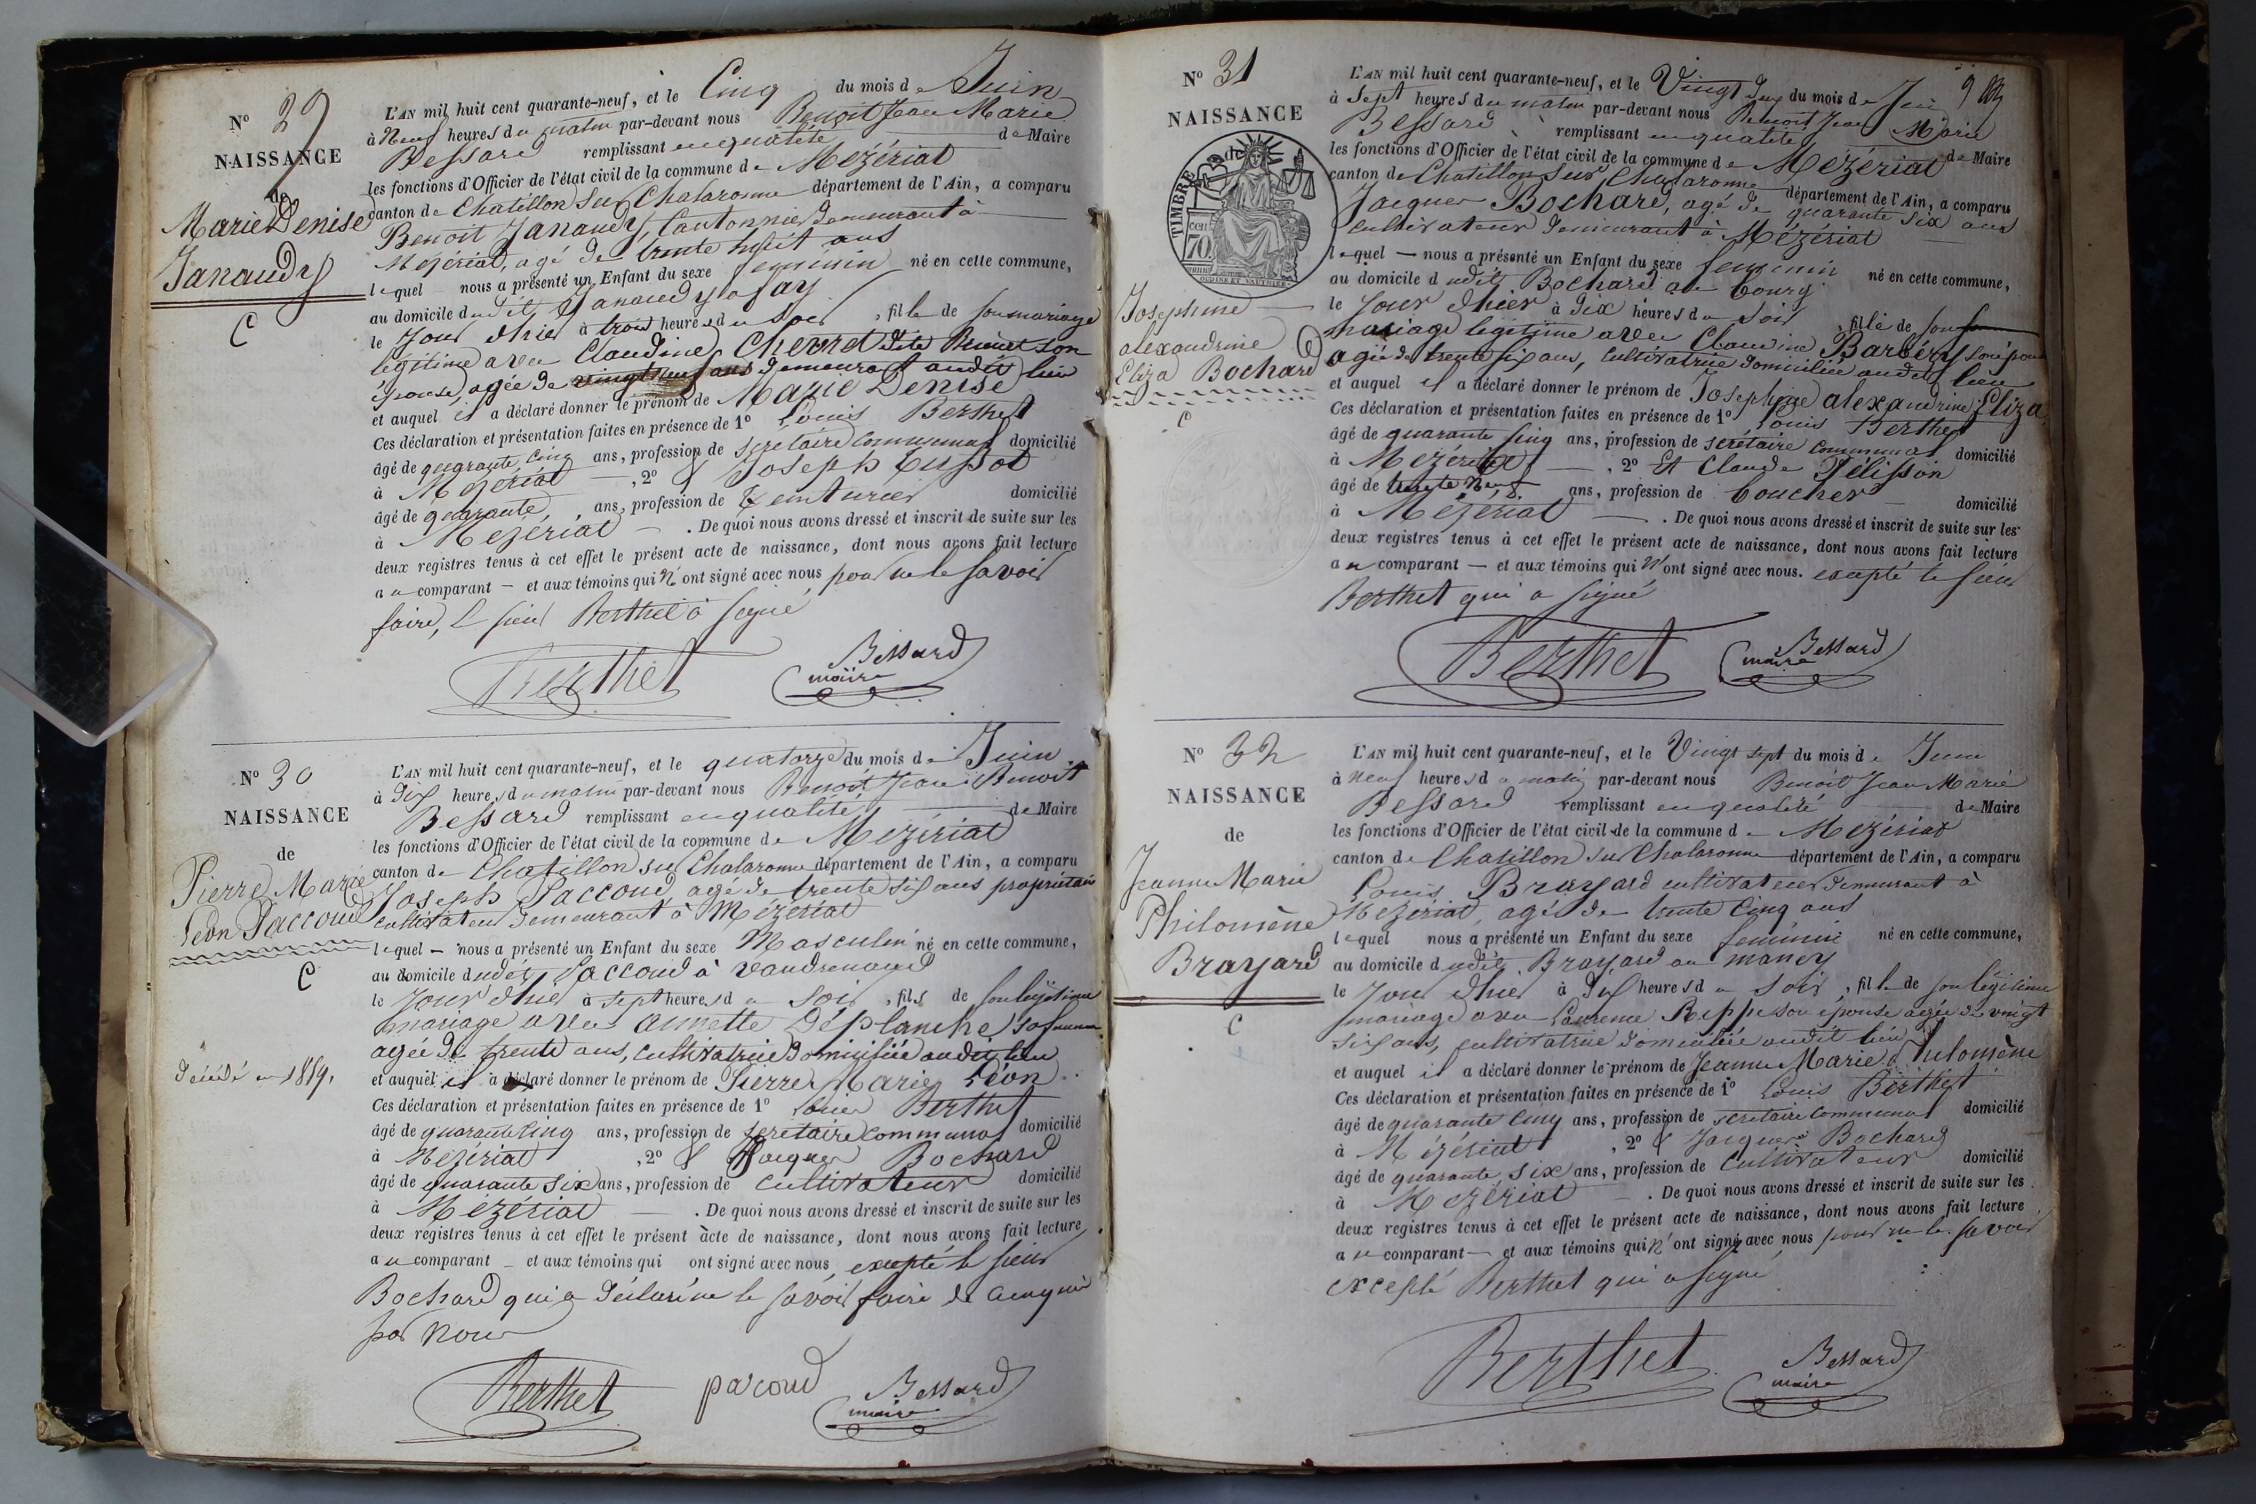 N° 29
NAISSANCE
de
Marie Denise
Janaudy
C
L'AN mil huit cent quarante-neuf, et le Cinq du mois de Juin
à Neuf heures du matin par-devant nous Benoit Jean Marie
Bessard remplissant en qualité de Maire
les fonctions d'Officier de l'état civil de la commune de Mézériat
canton de Chatillon sur Chalaronne département de l'Ain, a comparu
Benoit Janaudy, Cantonnier demeurant à
Mézériat, agé de trente huit ans
lequel nous a présenté un Enfant du sexe feminin né en cette commune,
au domicile dudit Janaudy a fay
le Jour d'hier à trois heures du soir, fille de son mariage
légitime avec Claudine Chevret dite son
épouse, agée de vingt neuf ans demeurant audit lieu
et auquel il a déclaré donner le prénom de Marie Denise
Ces déclaration et présentation faites en présence de 1° Louis Berthet
âgé de quarante cinq ans, profession de secretaire communal domicilié
à Mézériat, 2° & Joseph
âgé de quarante ans, profession de teinturier domicilié
à Mézériat. De quoi nous avons dressé et inscrit de suite sur les
deux registres tenus à cet effet le présent acte de naissance, dont nous avons fait lecture
au comparant — et aux témoins qui n'ont signé avec nous pour ne le savoir
faire, le sieur Berthet a signé
Berthet Bessard
maire
N° 30
NAISSANCE
de
Pierre Marie
Léon Paccoud
C
décédé en 1889.
L'AN mil huit cent quarante-neuf, et le quatorze du mois de Juin
à dix heures du matin par-devant nous Benoit Jean Benoit
Bessard remplissant en qualité de Maire
les fonctions d'Officier de l'état civil de la commune de Mézériat
canton de Chatillon sur Chalaronne département de l'Ain, a comparu
Joseph Paccoud agé de trente six ans propriétaire
cultivateur demeurant à Mézériat
lequel — nous a présenté un Enfant du sexe Masculin né en cette commune,
au domicile dudit Paccoud à
le Jour d'hier à sept heures du soir, fils de son légitime
mariage avec annette Déplanche sa femme
agée de trente ans, cultivatrice domiciliée audit lieu
et auquel il a déclaré donner le prénom de Pierre Marie Léon
Ces déclaration et présentation faites en présence de 1° Louis Berthet
âgé de quarante cinq ans, profession de secretaire communal domicilié
à Mézériat, 2° & Jacques Bochard
âgé de quarante six ans, profession de cultivateur domicilié
à Mézériat — . De quoi nous avons dressé et inscrit de suite sur les
deux registres tenus à cet effet le présent acte de naissance, dont nous avons fait lecture
au comparant — et aux témoins qui ont signé avec nous excepté le sieur
Bochard qui a déclaré ne le savoir faire de ce enquis
par nous
Berthet pacoud Bessard
maire
N° 31
NAISSANCE
TIMBRE
70.
Josephine
alexandrine
Eliza Bochard
C
L'AN mil huit cent quarante-neuf, et le Vingt du mois de Juin
à Sept heures du matin par-devant nous Benoit Jean Marie
Bessard remplissant en qualité de Maire
les fonctions d'Officier de l'état civil de la commune de Mézériat
canton de Chatillon sur Chalaronne département de l'Ain, a comparu
Jacques Bochard, agé de quarante six ans
cultivateur demeurant à Mézériat
lequel — nous a présenté un Enfant du sexe feminin né en cette commune,
au domicile dudit Bochard au bourg
le jour d'hier à dix heures du soir, fille de son
mariage légitime avec Claudine Barbéry son épouse
agée de trente six ans, cultivatrice domiciliée audit lieu
et auquel il a déclaré donner le prénom de Josephine alexandrine Eliza
Ces déclaration et présentation faites en présence de 1° Louis Berthet
âgé de quarante cinq ans, profession de secrétaire communal domicilié
à Mézériat — , 2° Et Claude Pélisson
âgé de trente neuf ans, profession de boucher domicilié
à Mézériat — . De quoi nous avons dressé et inscrit de suite sur les
deux registres tenus à cet effet le présent acte de naissance, dont nous avons fait lecture
au comparant — et aux témoins qui n'ont signé avec nous. excepté le sieur
Berthet qui a signé
Berthet Bessard
maire
N° 32
NAISSANCE
de
Jeanne Marie
Philomène
Brayard
C
L'AN mil huit cent quarante-neuf, et le Vingt sept du mois de Juin
à neuf heures du matin par-devant nous Benoit Jean Marie
Bessard remplissant en qualité de Maire
les fonctions d'Officier de l'état civil de la commune de Mézériat
canton de Chatillon sur Chalaronne département de l'Ain, a comparu
Louis Brayard cultivateur demeurant à
Mézériat, agé de trente cinq ans
lequel nous a présenté un Enfant du sexe feminin né en cette commune,
au domicile dudit Brayard au mancy
le jour d'hier à dix heures du soir, fille de son légitime
mariage avec Laurence Reppe son épouse agée de vingt
six ans, cultivatrice domiciliée audit lieu
et auquel il a déclaré donner le prénom de Jeanne Marie Philomène
Ces déclaration et présentation faites en présence de 1° Louis Berthet
âgé de quarante cinq ans, profession de secretaire communal domicilié
à Mézériat, 2° & Jacques Bochard
âgé de quarante six ans, profession de cultivateur domicilié
à Mézériat — . De quoi nous avons dressé et inscrit de suite sur les
deux registres tenus à cet effet le présent acte de naissance, dont nous avons fait lecture
au comparant — et aux témoins qui n'ont signé avec nous pour ne le savoir
excepté Berthet qui a signé
Berthet Bessard
maire